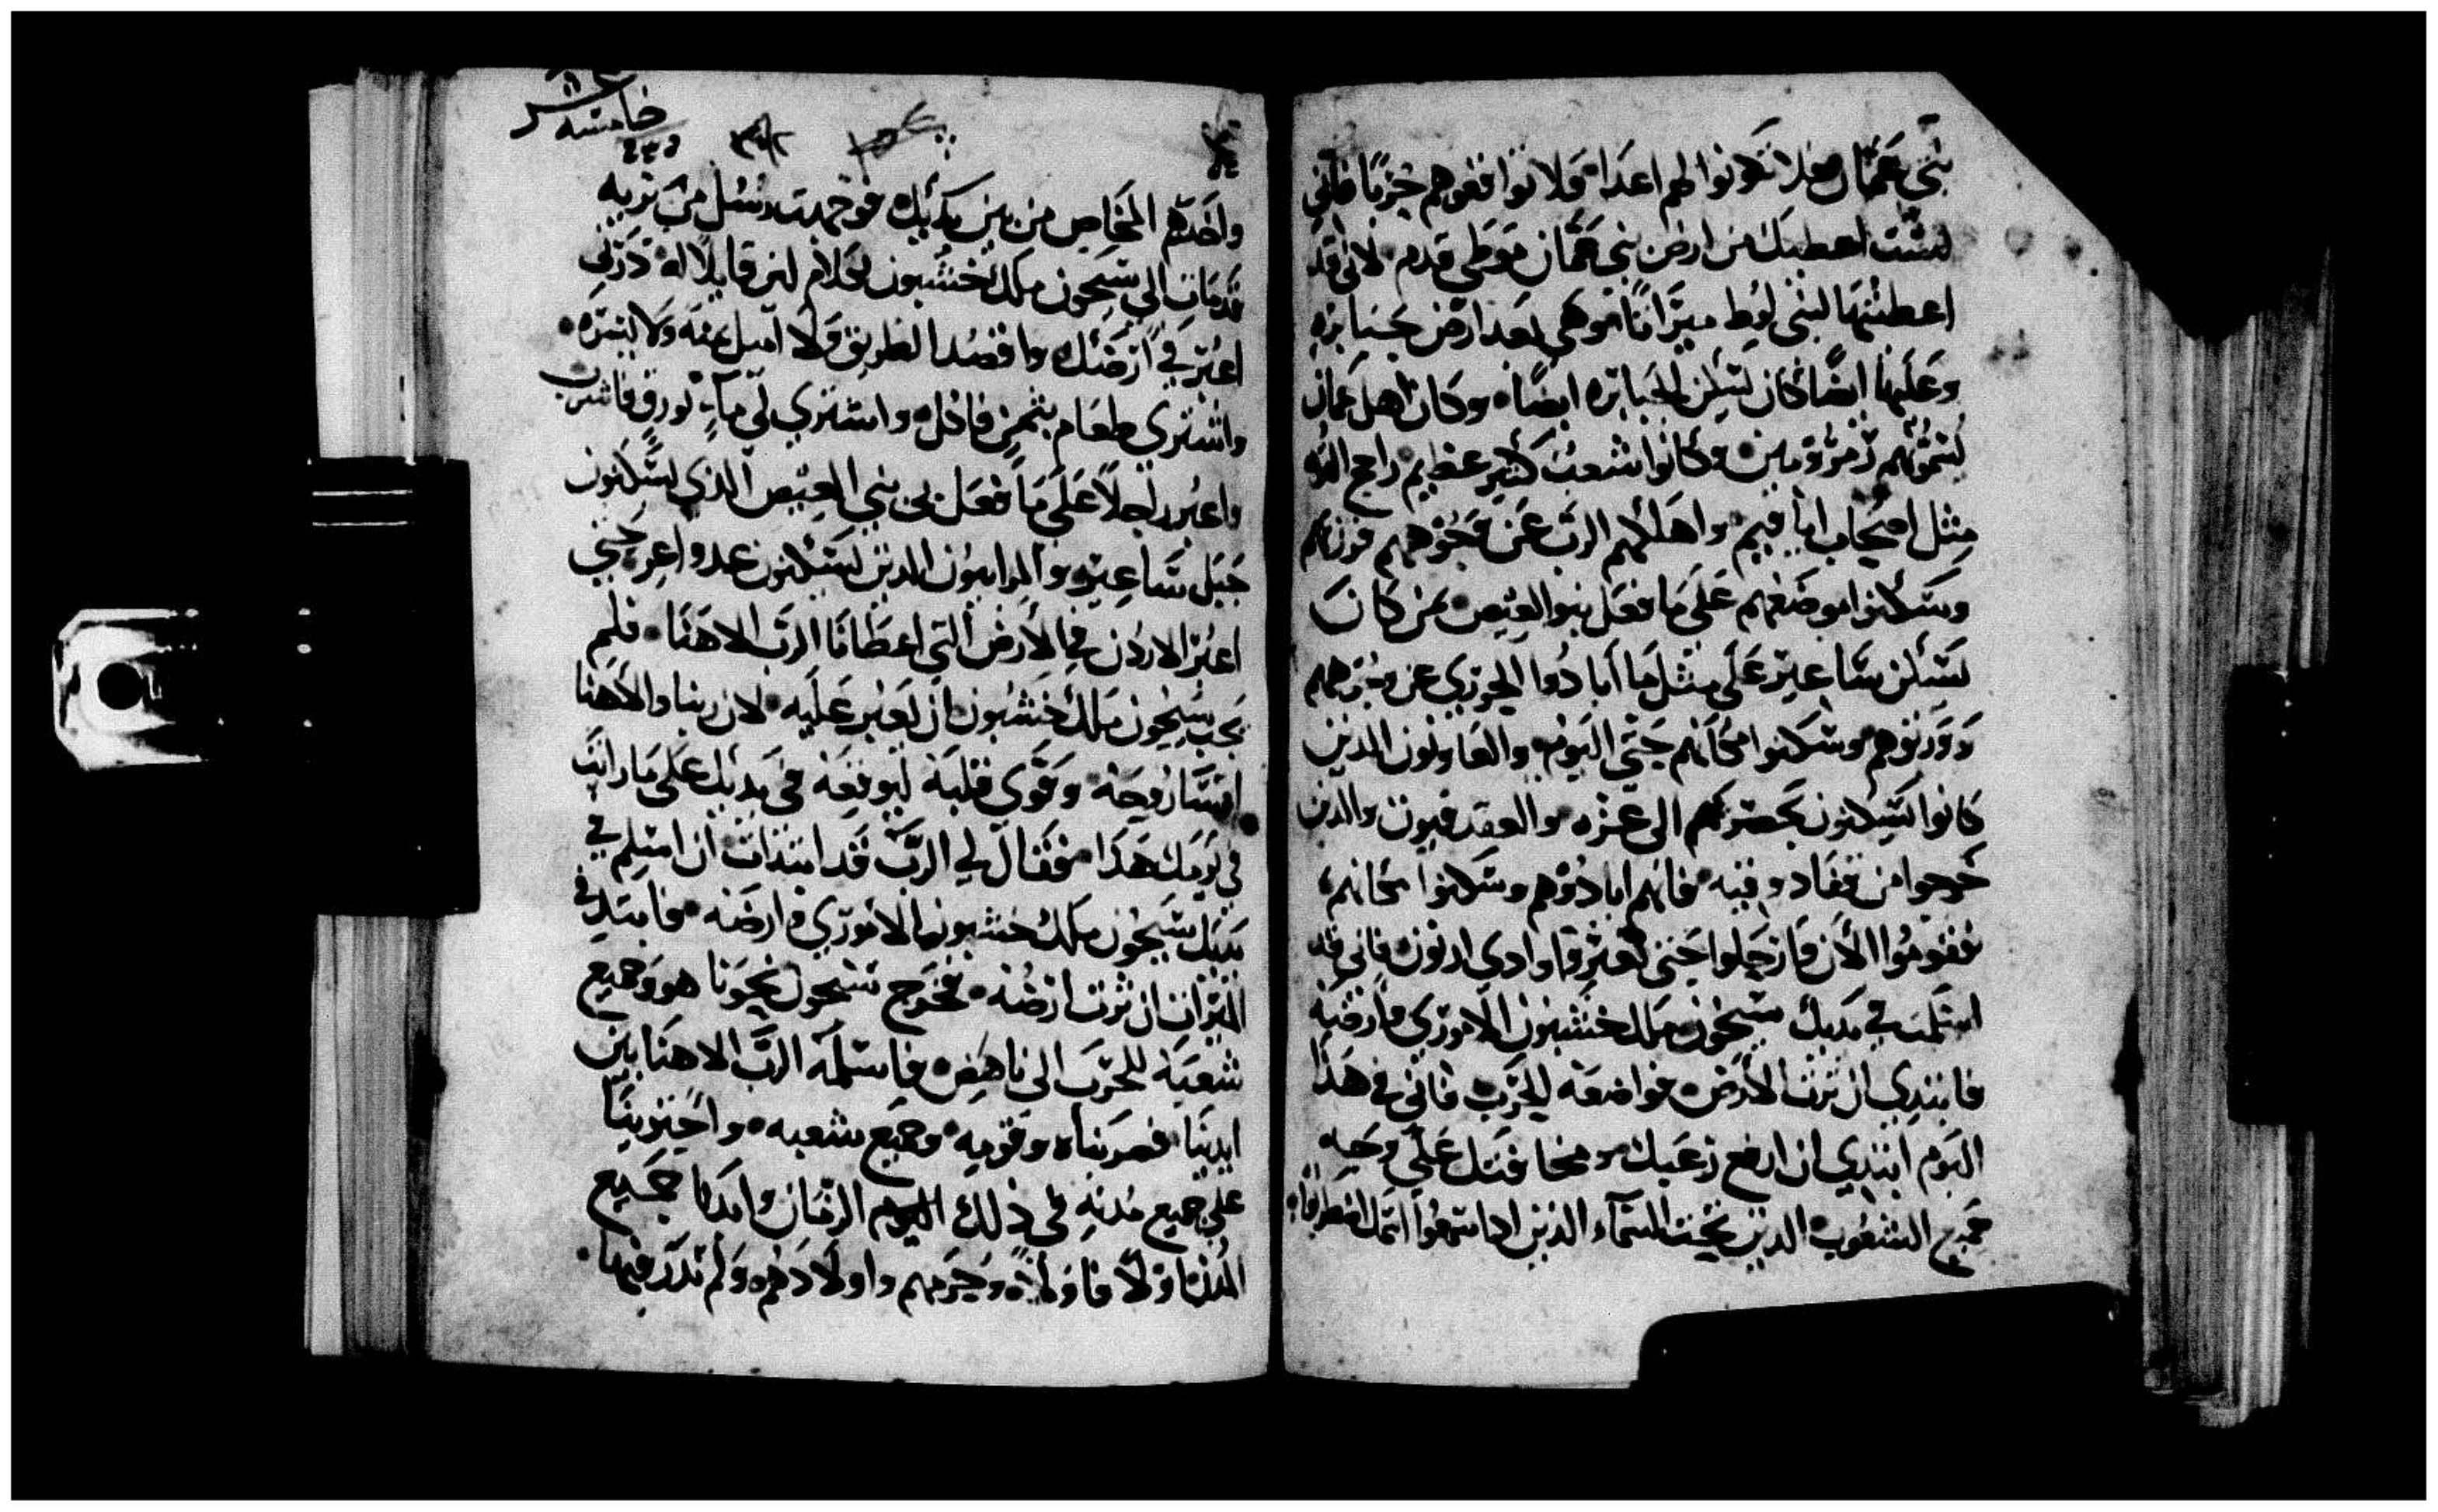 بني عمان فلا تكونوا لهم اعداء ولا توافقوهم حربًا فاني
لست اعطيك من ارض بني عمان موطي قدم لاني قد
اعطيتها لبني لوط ميراثًا وهي تعد ارض جبابره
وعليها ايضًا كان تسكن الجبابره ايضًا وكان اهل عمان
تسموهم زمزومين وكانوا شعب كثير عظيم راجح القوه
مثل اصحاب اناقيم واهلكهم الرب عن وجوههم فورثهم
وسكنوا موضعهم على ما فعل بنو العيص بمن كان
تسكن ساعير على مثل ما ابادوا الحوري عن وجوههم
وورثوهم وسكنوا مكانهم حتى اليوم والعاويون الدين
كانوا تسكنون بحصرتهم الى عزه والعقدقيون والدين
خرجوا من قفادوقيه فانهم ابادوهم وسكنوا مكانهم
فقوموا الان فارتحلوا حتى تعبروا وادي ارنون فاني قد
اسلمت في يديك سيحون ملك خشبون الاموري وارضه
فابتدي ان ترث الارض فواضعه للحرب فاني في هدا
اليوم ابتدي ان ارفع رعبك ومخافتك على وجه
جميع الشعوب الدين تحت السماء الدين ادا سمعوا اسمك اضطربوا
خامسة عشر
واخدهم المخاض من بين يديك فوجهت رسل من بريه
قدمات الى سيحون ملك خشبون بكلام لين قايلاً له درني
اعبر في ارضك واقصد الطريق ولا اميل يمنه ولا يسره
واشتري طعام بثمن فاكل واشتري لي ماء بورق فاشرب
واعبر راجلاً على ما فعل بي بني العيص الدي تسكنون
جبل ساعير والموابيون الدين تسكنون عدواعر حتي
اعبر الاردن في الارض التي اعطانا الرب الاهنا فلم
يجب سيحون ملك خشبون ان نعبر عليه لان ربنا والاهنا
اقسا روحه وقوى قلبه ليوقعه في يديك على ما رايت
في يومك هدا فقال لي الرب قد ابتدات ان اسلم في
يديك سيحون ملك خشبون الاموري وارضه فابتدي في
الميراث ان ترث ارضه فخرج سيحون نحونا هو وجميع
شعبه للحرب الى ناهص فاسلمه الرب الاهنا بين
ايدينا فضربناه وقومه وجميع شعبه واحتوينا
على جميع مدنه في ذلك الزمان وابدنا جميع
المدن اولاً فاولاً وحرمهم واولادهم ولم ندر فيها